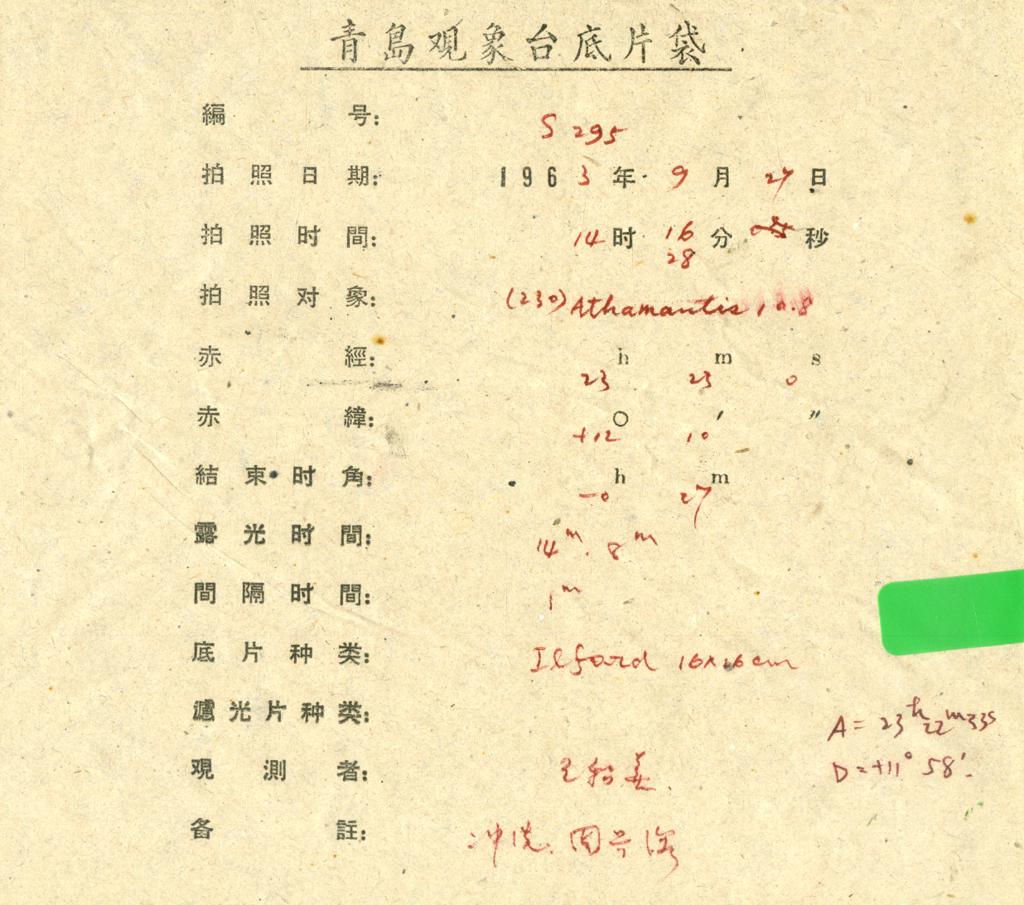 青島观象台底片袋
編号： S 295
拍照日期： 1963年9月27日
拍照时間： 14时16分秒
28
拍照对象： (230) Athamantis 10.8
赤經： 23h 23m 0s
赤緯： +12° 10′ ″
結束时角： -0h 27m
露光时間： 14m. 8m
間隔时間： 1m
底片种类： Ilford 16×16cm
濾光片种类：
A = 23h 22m 33s
観測者：
D = +11° 58′.
备註： 冲洗.